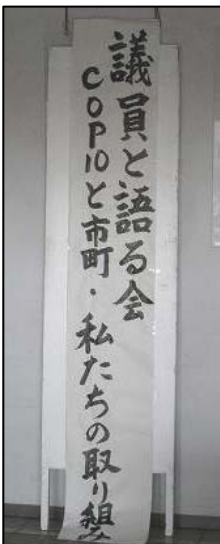 議員と語る会
COP10と市町・私たちの取り組み